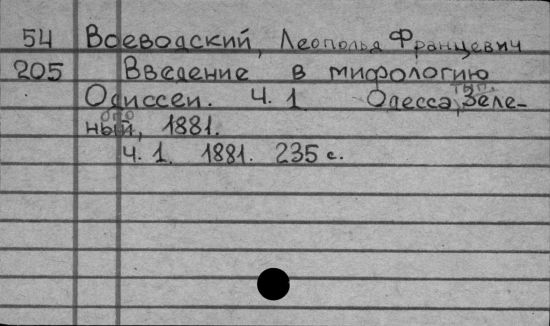 54 Воеводский, Леопольд Францевич
205 Введение в мифологию
Одиссеи. Ч. 1 Одесса, тип. Зеле-
ного, 1881.
ч. 1. 1881. 235 с.